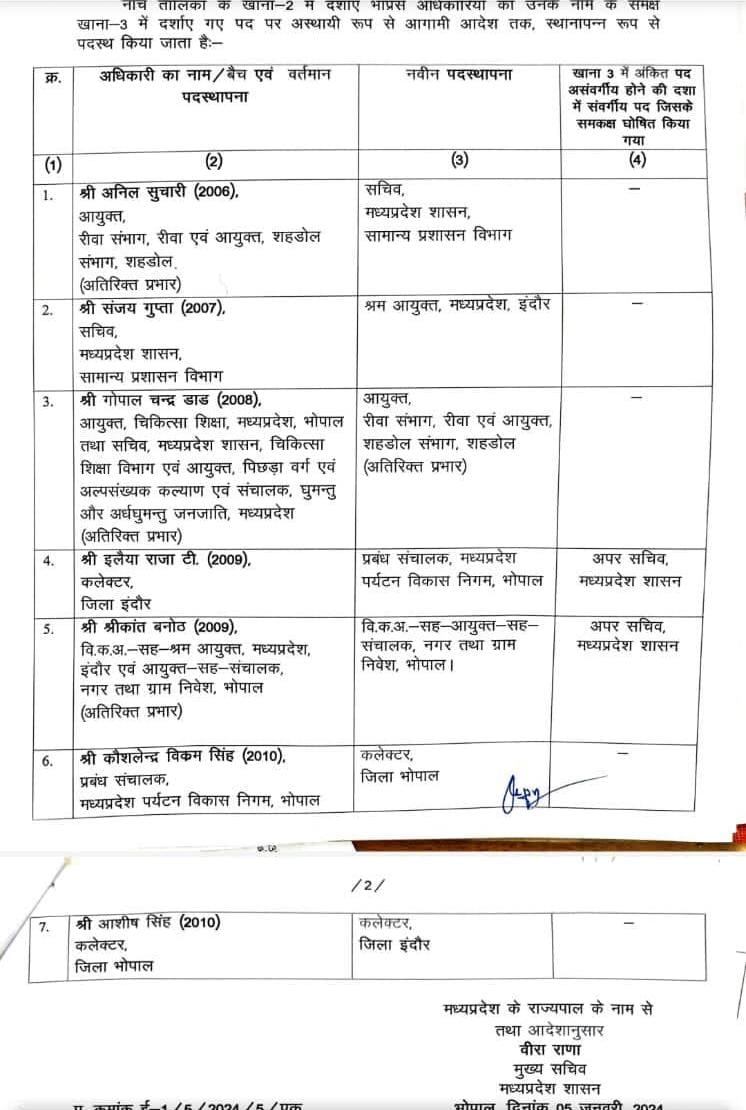 नीचे तालिका के खाना-2 में दर्शाए गए भाप्रसे अधिकारियों को उनके नाम के समक्ष
खाना-3 में दर्शाए गए पद पर अस्थायी रूप से आगामी आदेश तक, स्थानापन्न रूप से
पदस्थ किया जाता है:–
क्र.
अधिकारी का नाम/बैच एवं वर्तमान
पदस्थापना
नवीन पदस्थापना
खाना 3 में अंकित पद
असंवर्गीय होने की दशा
में संवर्गीय पद जिसके
समकक्ष घोषित किया
गया
(1)
(2)
(3)
(4)
1.
श्री अनिल सुचारी (2006),
आयुक्त,
रीवा संभाग, रीवा एवं आयुक्त, शहडोल
संभाग, शहडोल
(अतिरिक्त प्रभार)
सचिव,
मध्यप्रदेश शासन,
सामान्य प्रशासन विभाग
–
2.
श्री संजय गुप्ता (2007),
सचिव,
मध्यप्रदेश शासन,
सामान्य प्रशासन विभाग
श्रम आयुक्त, मध्यप्रदेश, इंदौर
–
3.
श्री गोपाल चन्द्र डाड (2008),
आयुक्त, चिकित्सा शिक्षा, मध्यप्रदेश, भोपाल
तथा सचिव, मध्यप्रदेश शासन, चिकित्सा
शिक्षा विभाग एवं आयुक्त, पिछड़ा वर्ग एवं
अल्पसंख्यक कल्याण एवं संचालक, घुमन्तु
और अर्धघुमन्तु जनजाति, मध्यप्रदेश
(अतिरिक्त प्रभार)
आयुक्त,
रीवा संभाग, रीवा एवं आयुक्त,
शहडोल संभाग, शहडोल
(अतिरिक्त प्रभार)
–
4.
श्री इलैया राजा टी. (2009),
कलेक्टर,
जिला इंदौर
प्रबंध संचालक, मध्यप्रदेश
पर्यटन विकास निगम, भोपाल
अपर सचिव,
मध्यप्रदेश शासन
5.
श्री श्रीकांत बनोठ (2009),
वि.क.अ.–सह–श्रम आयुक्त, मध्यप्रदेश,
इंदौर एवं आयुक्त–सह–संचालक,
नगर तथा ग्राम निवेश, भोपाल
(अतिरिक्त प्रभार)
वि.क.अ.–सह–आयुक्त–सह–
संचालक, नगर तथा ग्राम
निवेश, भोपाल।
अपर सचिव,
मध्यप्रदेश शासन
6.
श्री कौशलेन्द्र विक्रम सिंह (2010),
प्रबंध संचालक,
मध्यप्रदेश पर्यटन विकास निगम, भोपाल
कलेक्टर,
जिला भोपाल
–
/2/
7.
श्री आशीष सिंह (2010)
कलेक्टर,
जिला भोपाल
कलेक्टर,
जिला इंदौर
–
मध्यप्रदेश के राज्यपाल के नाम से
तथा आदेशानुसार
वीरा राणा
मुख्य सचिव
मध्यप्रदेश शासन
क्रमांक ई–1/5/2024/5/एक
भोपाल, दिनांक 05 जनवरी, 2024